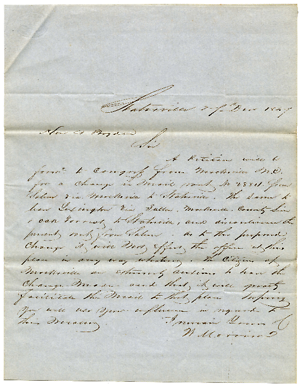 Statesville Decr 1847
Sir
A Petition will be
sent to Congress from Mocksville N.C.
for a change in Mail rout No 2881 from
Salem via Mocksville to Statesville. The same to
leave Lexington via Fulton, Mocksville, County Line,
Oak Forest to Statesville, and discontinue the
present rout from Salem. as to the proposed
change it will not effect the office at this
place in any way whatever, the Citizens of
Mocksville are extremely anxious to have the
Change Made. and that it will greatly
facilitate the Mail to that place. hoping
you will use your influence in regard to
this
I remain Yours